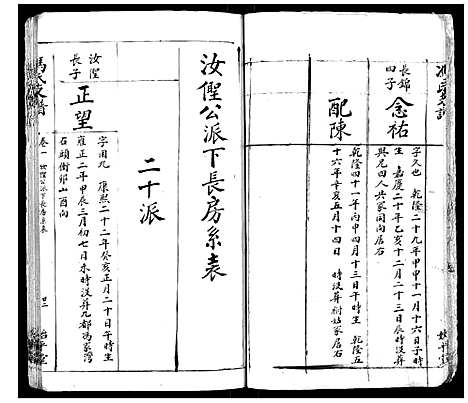 長錦
四子
念祐
字久也 乾隆二十九年甲申十一月十六日子時
生 嘉慶二十年乙亥十二月二十三日辰時没葬
與兄四人共冢同向居右
配陳
乾隆四十一年丙申四月十三日午時生 乾隆五
十六年辛亥五月十四日 時没葬 冢居右
汝傑公派下長房系表
二十派
汝傑
長子
正望
字用九 康熙二十二年癸亥正月二十日午時生
雍正二年甲辰三月初七日未時没葬九都馮家灣
石頭衝卯山酉向
卷一 汝傑公派下長房系表
廿三
始平堂